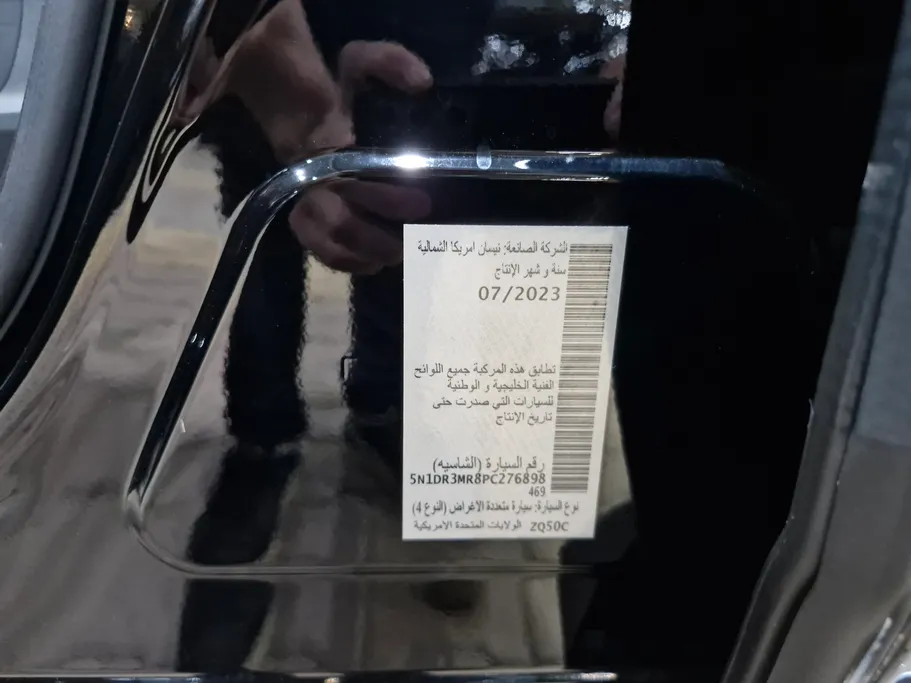 الشركة الصانعة: نيسان امريكا الشمالية
سنة و شهر الإنتاج
07/2023
تطابق هذه المركبة جميع اللوائح
الفنية الخليجية و الوطنية
للسيارات التي صدرت حتى
تاريخ الإنتاج
رقم السيارة (الشاسيه)
5N1DR3MR8PC276898
469
نوع السيارة: سيارة متعددة الأغراض (النوع 4)
ZQ50C الولايات المتحدة الامريكية